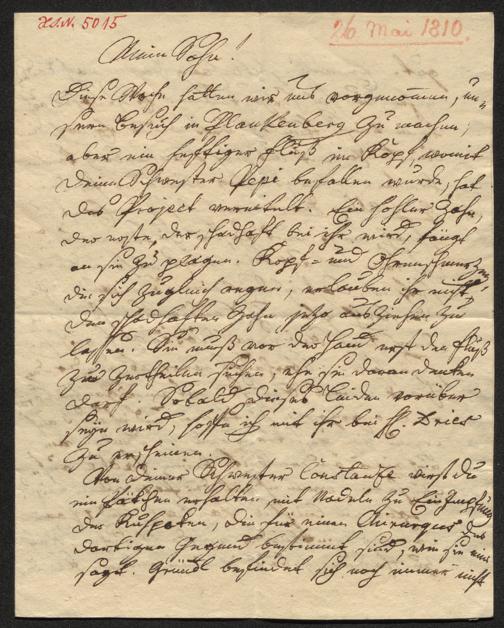 H.I.N. 5015
26 Mai 1810.
Mein Sohn!
Diese Woche hatten wir uns vorgenommen, un-
sern Besuch in Plankenberg zu machen;
aber ein heftiger Fluß im Kopf, womit
deine Schwester Pepi befallen wurde, hat
das Project vereitelt. Ein hohler Zahn,
der erste, der schadhaft bei ihr wird, fängt
an sie zu plagen. Kopf- und Ohrenschmerzen,
die sich zugleich regen, erlauben ihr nicht
den schadhaften Zahn jezo ausziehen zu
lassen. Sie muß vor der Hand erst den Fluß
zu zertheilen suchen, ehe sie daran denken
darf. Sobald dieses Leiden vorüber
seyn wird, hoffe ich mit ihr bei H. Dries
zu erscheinen.
Von deiner Schwester Constanze wirst du
ein erhalten mit Nadeln zu Einimpfung
der Kuhpocken, die für einen Chirurgus
dortigen Gegend bestimmt sind, wie sie mir
sagt. befindet sich noch immer nicht